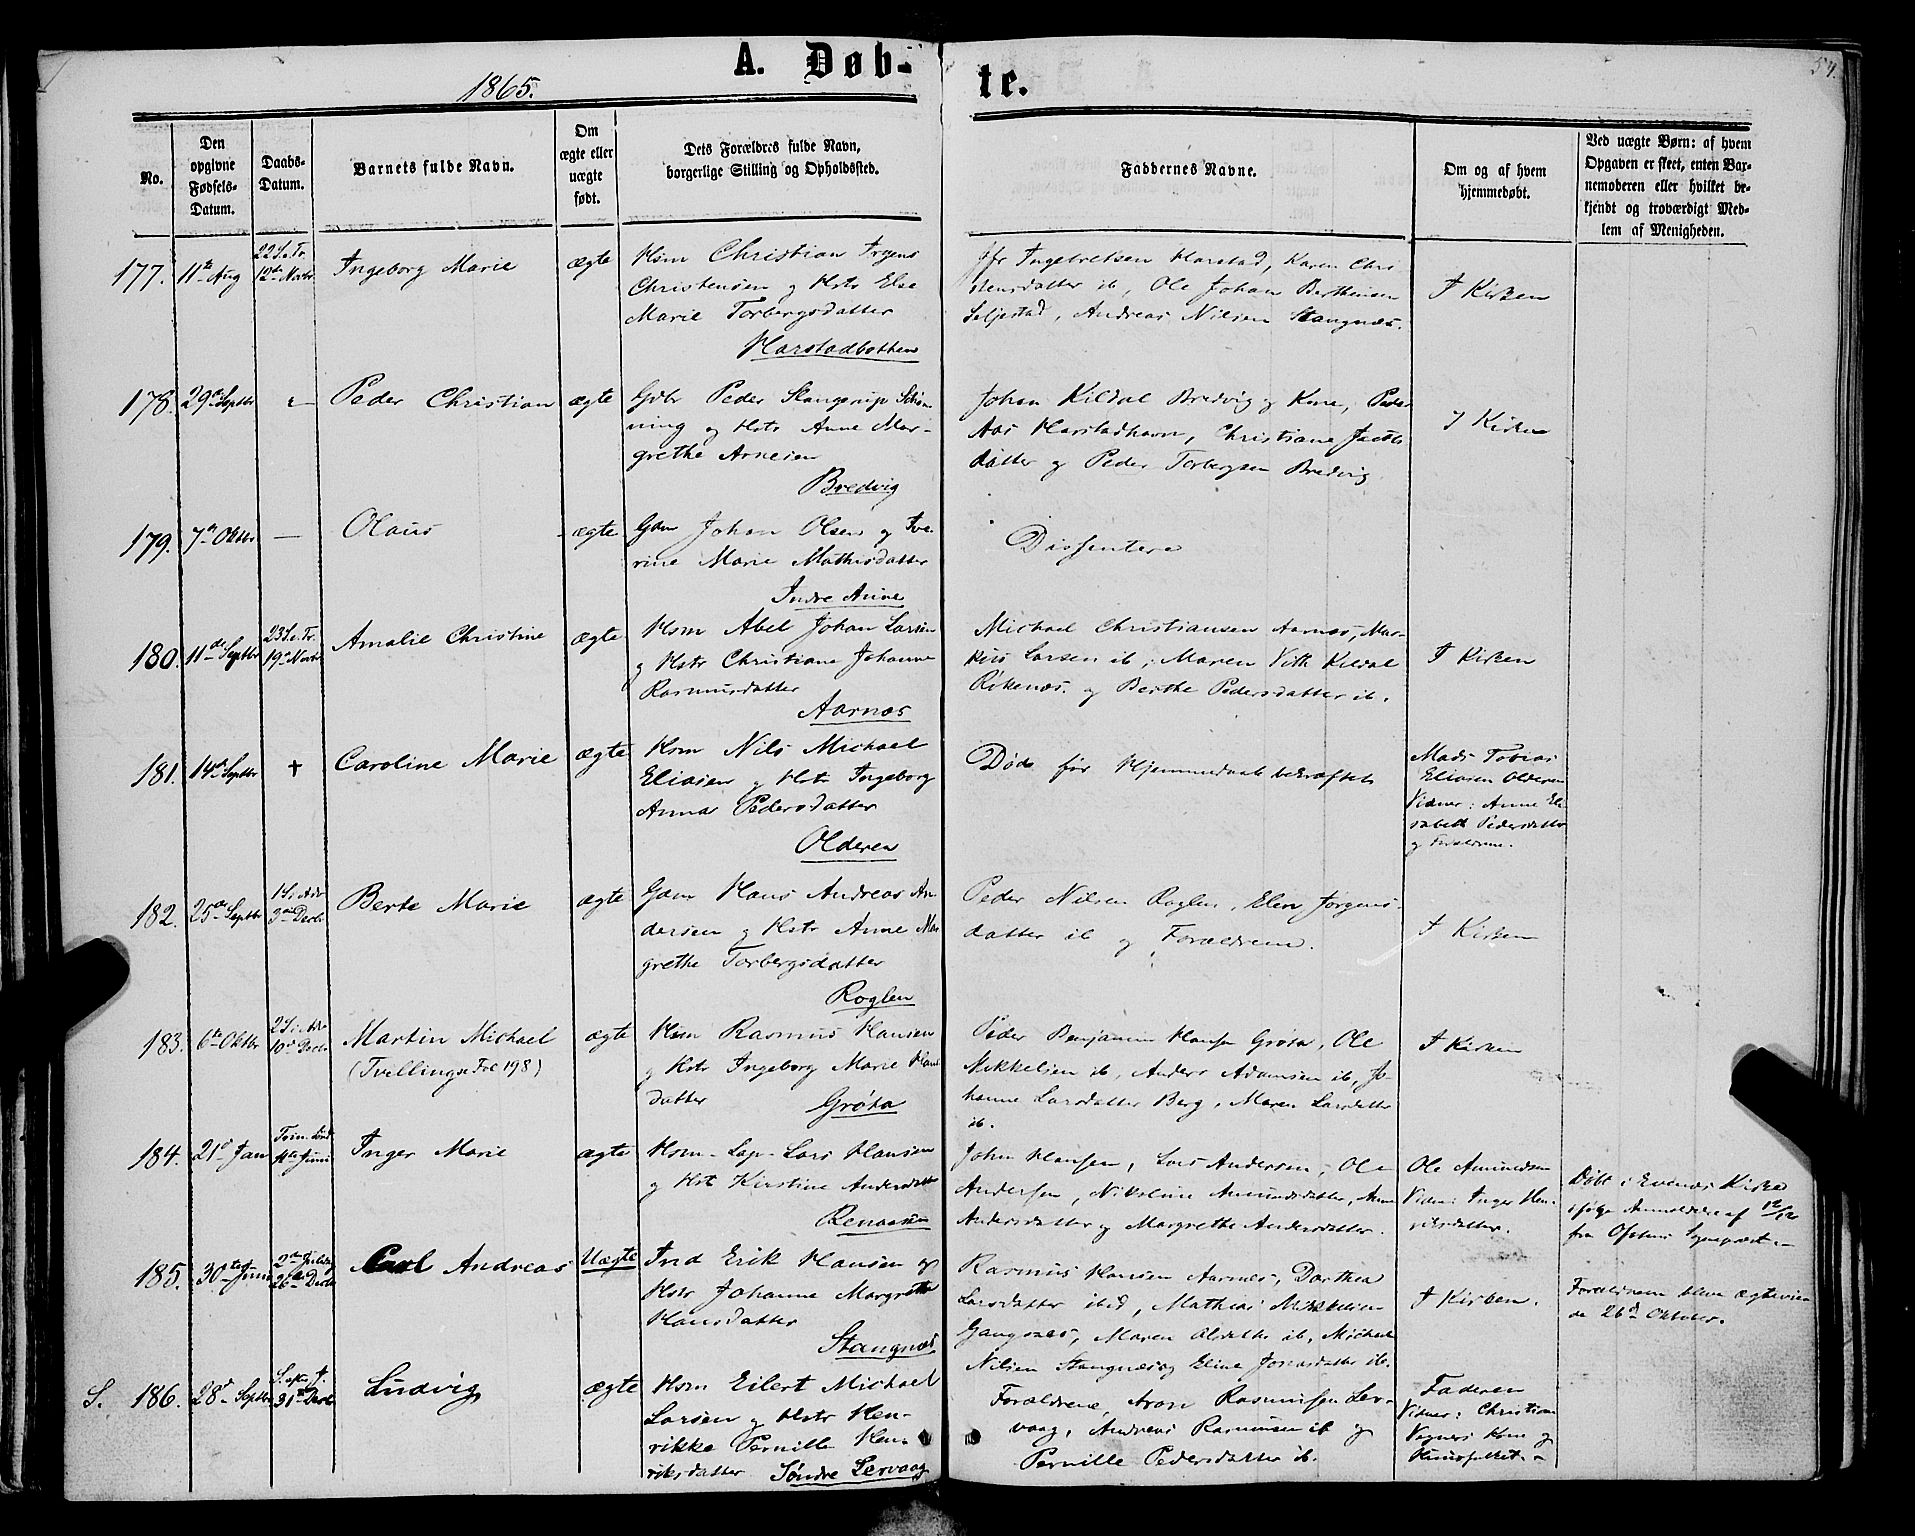 A. Døb-te.
1865.
54.
No.
Den opgivne Fødsels-Datum.
Daabs-Datum.
Barnets fulde Navn.
Om ægte eller uægte født.
Dets Forældres fulde Navn, borgerlige Stilling og Opholdssted.
Faddernes Navne.
Om og af hvem hjemmedøbt.
Ved uægte Børn: af hvem Opgaven er skeet, enten Bar-nemoderen eller hvilket be-kjendt og troværdigt Med-lem af Menigheden.
177. 11te Aug
22 S. e. Tr.
12te Novbr
Ingeborg Marie
ægte
Hsm Christian
Christensen og Hstr Else
Marie Torbergsdatter
Harstadbotten
Ingebretsen Harstad, Karen Chri-
stensdatter ib, Ole Johan Berthensen
Seljestad, Andreas Nilsen Stangnæs.
I Kirken
178. 29de Septbr
Peder Christian
ægte
Gdbr Peder Stangerup Schøn-
ning og Hstr Anne Mar-
grethe Arnesen
Bredvig
Johan Kildal Bredvig og Kone, Peder
Aas Harstadhavn, Christiane Jacobs
datter og Peder Torbergsen Bredvig
I Kirken
179. 7de Oktbr —
Olaus
ægte
Gdm Johan Olsen og
rine Marie Mathisdatter
Indre Aune
Dissentere
180. 11de Septbr
23 S. e. Tr.
19de Novbr
Amalie Christine
ægte
Hsm Abel Johan Larsen
og Hstr Christiane Johanne
Rasmusdatter
Aarnæs
Michael Christiansen Aarnæs, Mar-
kus Larsen ib, Maren Kildal
og Berthe Pedersdatter ib.
I Kirken
181. 14de Septbr
†
Caroline Marie
ægte
Hsm Nils Michael
Eliasen og Hstr Ingeborg
Anna Pedersdatter
Olderen
Døde før Hjemmedaab bekræftet
Mads Tobias
Eliasen Olderen
Vidner: Anne Eli-
sabeth Pedersdatter
og Forældrene.
182. 25de Septbr
1 S. i Adv
3die Decbr
Berte Marie
ægte
Gdm Hans Andreas An-
dersen og Hstr Anne Mar
grethe Torbergsdatter
Roglen
Peder Nilsen Roglen, Elen Jørgens-
datter ib og Forældrene.
I Kirken
183. 6te Oktbr
2 S. i Adv
10de Decbr
Martin Michael
(Tvilling se No 198)
ægte
Hsm Rasmus Hansen
og Hstr Ingeborg Marie Hans
datter
Grøta
Peder Benjamin Hansen Grøta, Ole
Mikkelsen ib, Anders Adamsen ib, Jo-
hanne Larsdatter Berg, Maren Larsdatter
ib.
I Kirken
184. 21de Jan
Trin. Sønd
11te Juni
Inger Marie
ægte
Hsm - Lap - Lars Hansen
og Hst Kirstine Andersdatter
Renaasen
John Hansen, Lars Andersen, Ole
Andersen, Nikoline Amundsdatter, Anne
Andersdatter og Margrethe Andersdatter.
Ole Amundsen
Vidne: Inger Hen-
riksdatter.
Døbt i Evenæs Kirke
ifølge Anmeldelse af 12/12
fra Ofotens Sognepræst.-
185. 30te Juni
2den Juledag
26de Decbr
Carl Andreas
Uægte
Ind Erik Hansen og
Hstr Johanne Margrethe
Hansdatter
Stangnæs
Rasmus Hansen Aarnæs, Dorthea
Larsdatter ibid, Mathias Mikkelsen
Gangsaas, Maren Olsdatter ib, Michael
Nilsen Stangnæs og Eline Jonasdatter ib.
I Kirken.
Forældrene bleve ægtevie-
de 26de Oktober.
S. 186. 28de Septbr
S. efter J.
31te Decbr
Ludvig
ægte
Hsm Eilert Michael
Larsen og Hstr Hen-
rikke Pernille Hen-
riksdatter Søndre Lervaag
Forældrene, Aron Rasmussen Ler-
vaag, Andreas Rasmussen ib og
Pernille Pedersdatter ib.
Faderen
Vidner: Christian
Vogners Kone og
Huusfolket.-